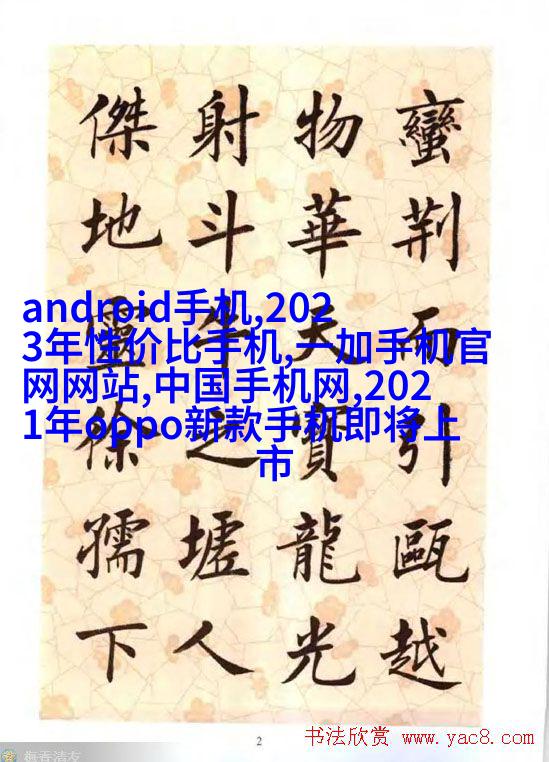 蠻荆而引甌越
物華天寶龍光
射斗牛之墟人
傑地靈徐孺下
android手机,202
3年性价比手机,一加手机官
网网站,中国手机网,202
1年oppo新款手机即将上
市
2
书法欣赏 www.yac8.com